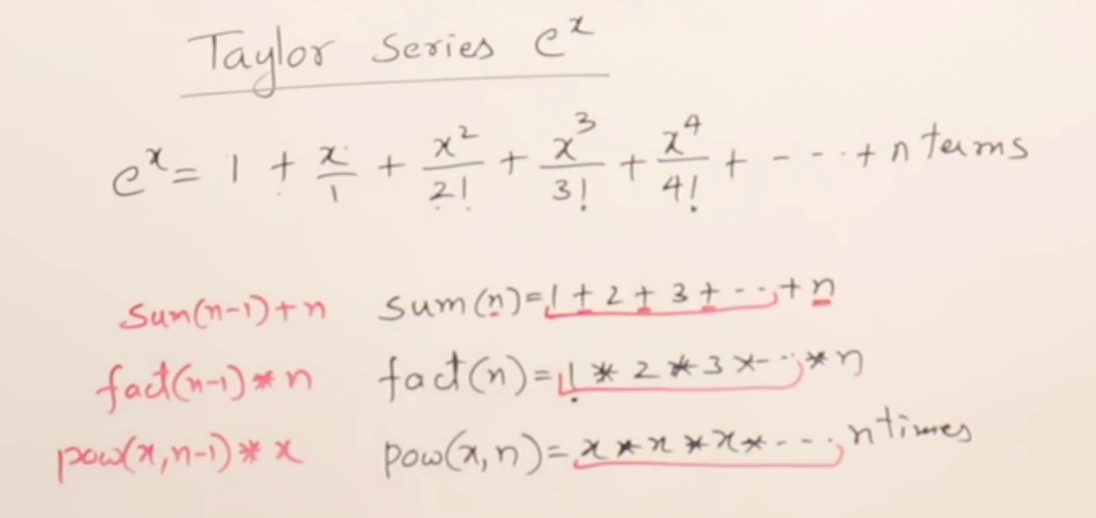 Taylor Series e^x
e^x = 1 + x/1 + x^2/2! + x^3/3! + x^4/4! + - - - + n terms
Sum(n-1)+n sum(n)=1+2+3+---+n
fact(n-1)*n fact(n)=1*2*3*---*n
pow(x,n-1)*x pow(x,n)=x*x*x*---- n times